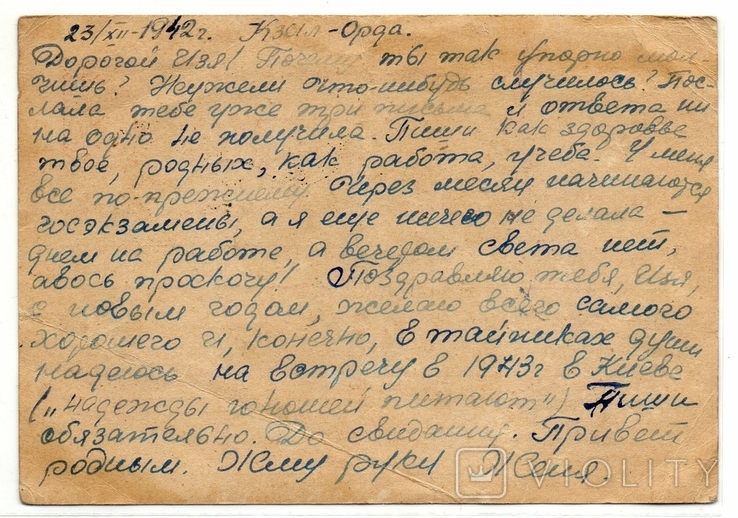 23/XII-1942г. Кзыл-Орда.
Дорогой Изя! Почему ты так упорно мол-
чишь? Неужели что-нибудь случилось? Пос-
лала тебе уже три письма и ответа ни
на одно не получила. Пиши как здоровье
твое, родных, как работа, учеба. У меня
все по-прежнему. Через месяц начинаются
госэкзамены, а я еще ничего не делала –
днем на работе, а вечером света нет,
авось проскочу! Поздравляю тебя, Изя,
с новым годом, желаю всего самого
хорошего и, конечно, в тайниках души
надеюсь на встречу в 1943г в Киеве
(„надежды юношей питают") Пиши
обязательно. До свидания. Привет
родным. Жму руку Женя.
VIOLITY